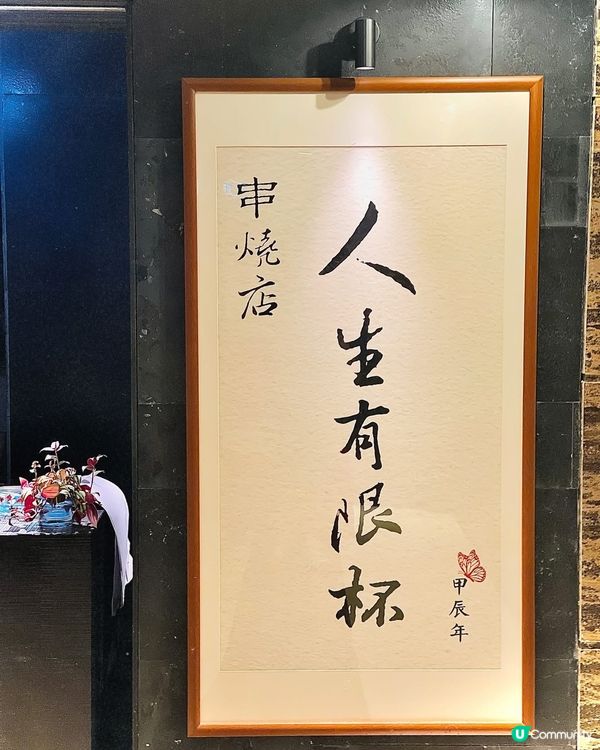 人生有限杯
串燒店
甲辰年
U Community